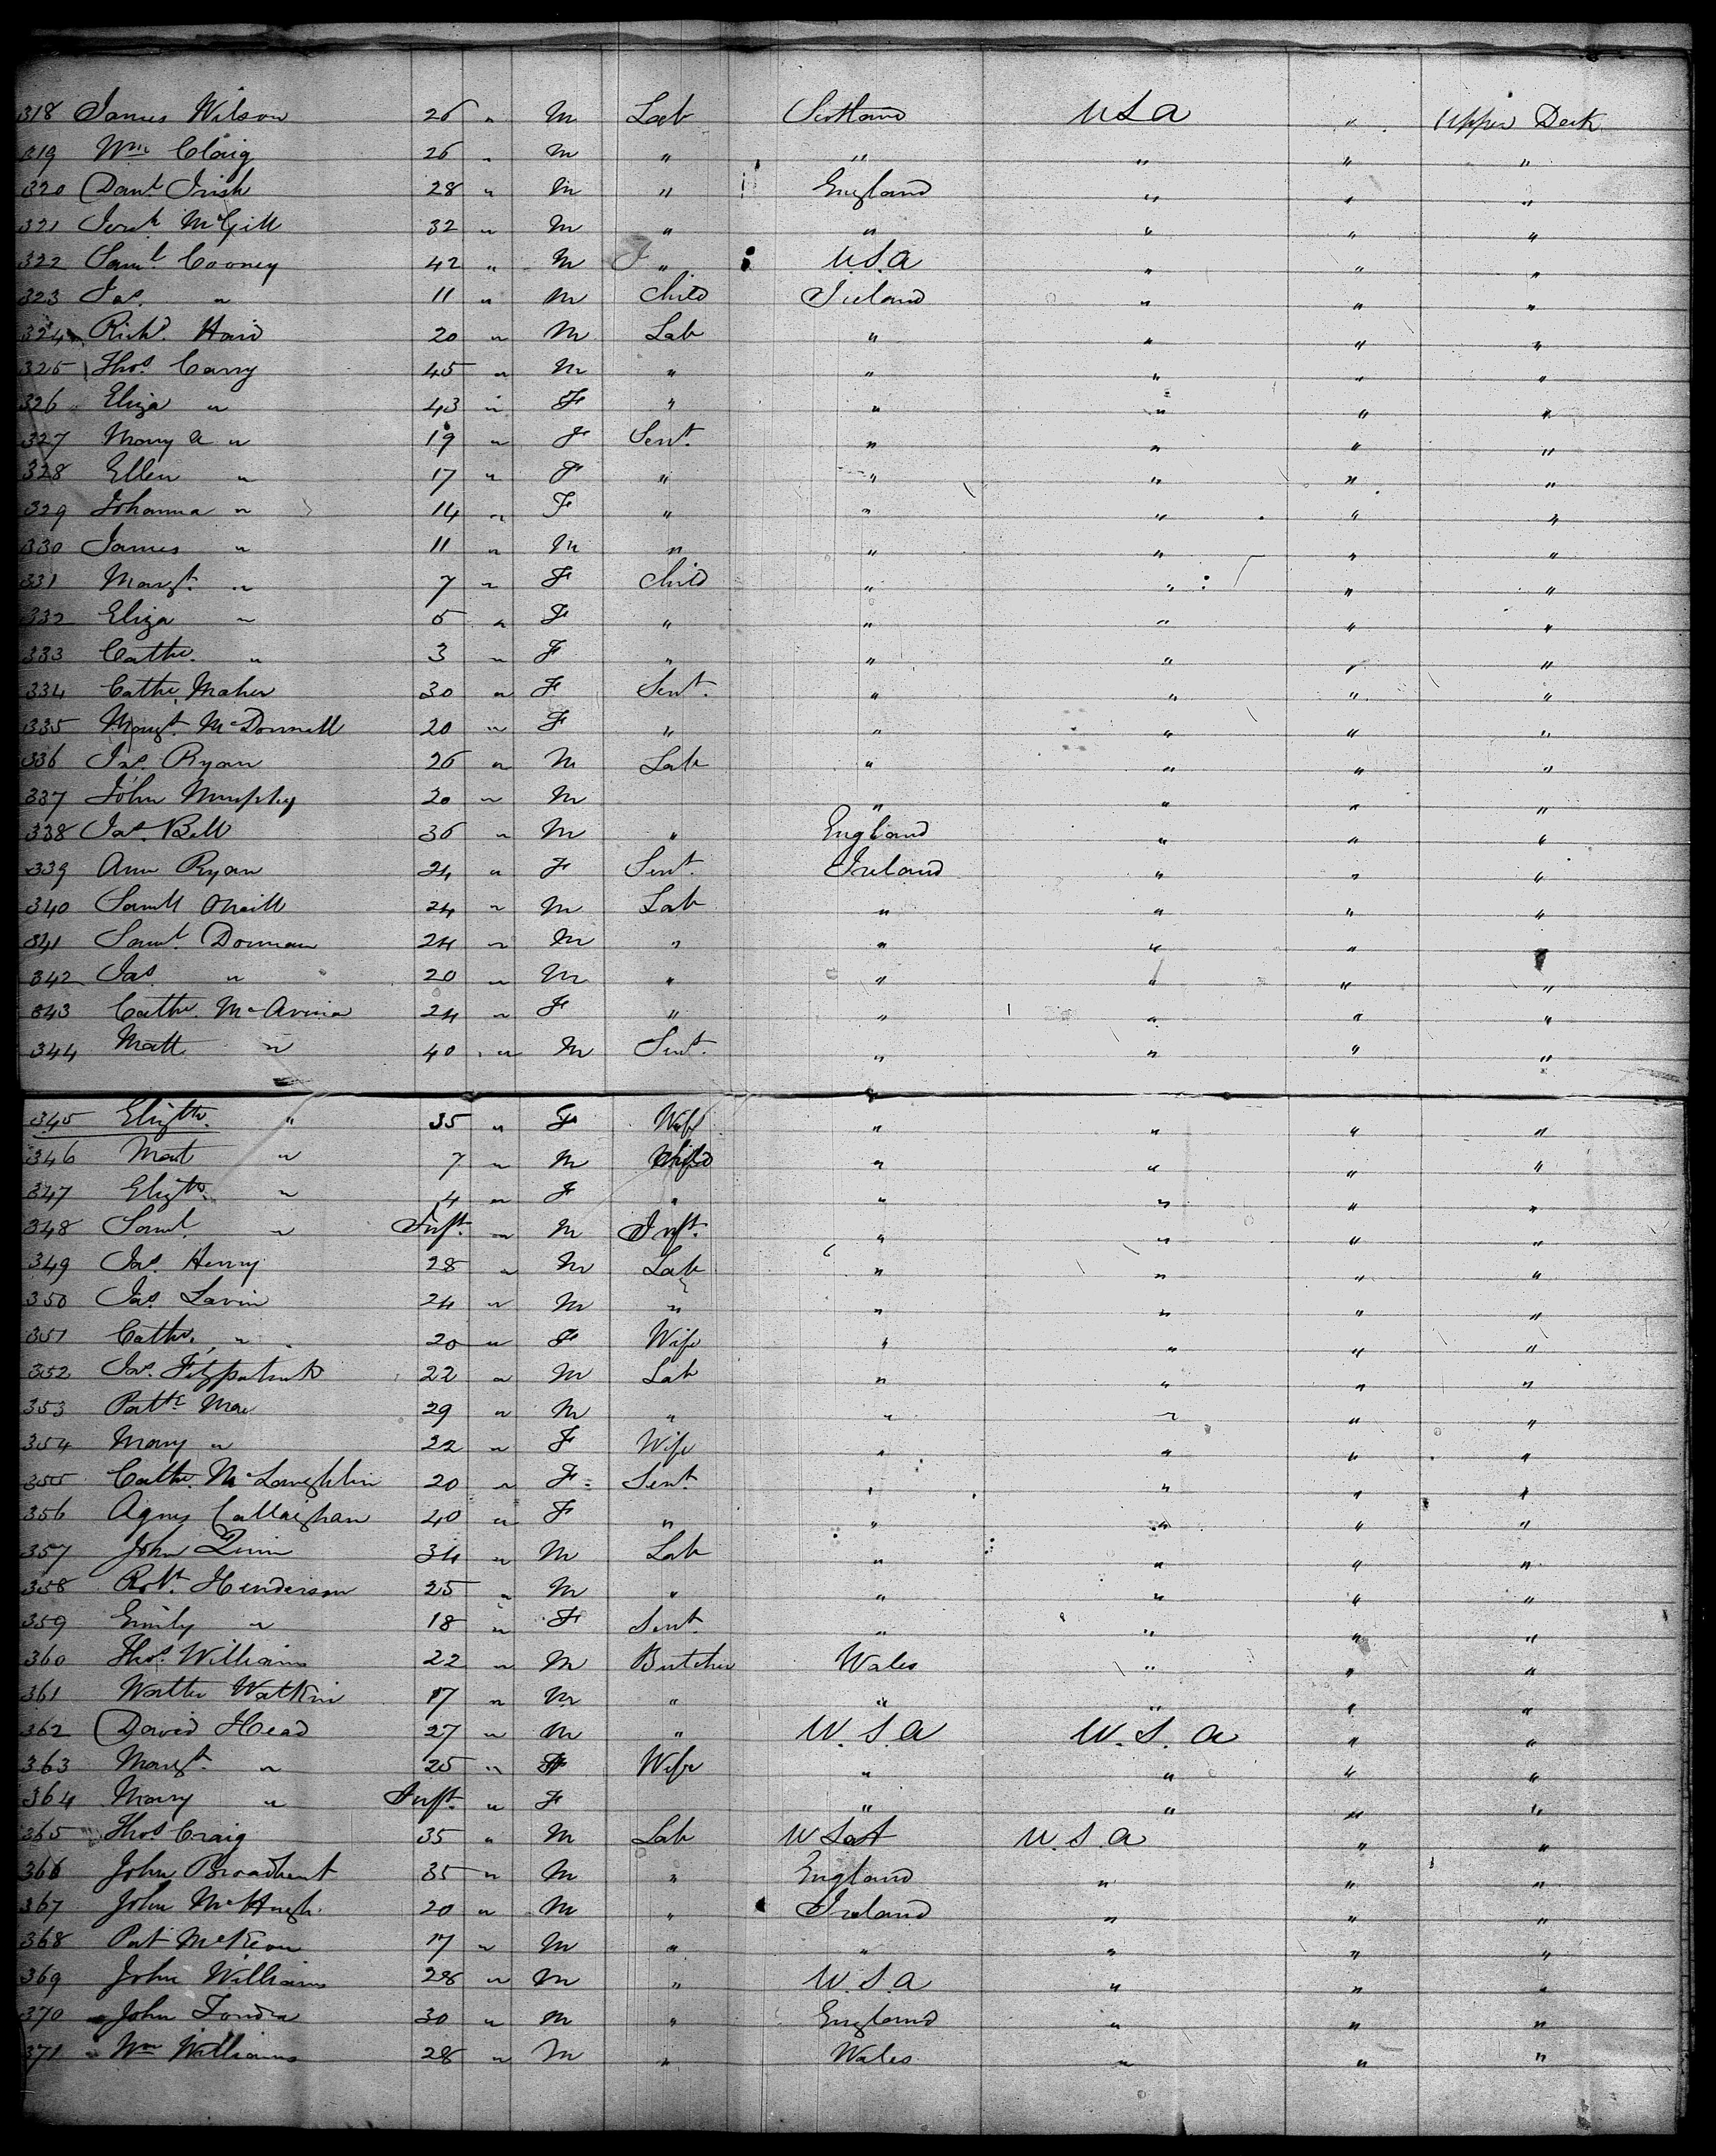 318 James Wilson 26 " M Lab Scotland USA " Upper Deck
319 Wm Craig 26 " M " " " " "
320 Danl Irish 28 " M " England " " "
321 McGill 32 " M " " " " "
322 Saml Cooney 42 " M " U.S.A " " "
323 Jas. " 11 " M Child Ireland " " "
324 Richd. 20 " M Lab " " " "
325 Thos. Carry 45 " M " " " " "
326 Eliza " 43 " F " " " " "
327 Mary A " 19 " F Sent. " " " "
328 Ellen " 17 " F " " " " "
329 Johanna " 14 " F " " " " "
330 James " 11 " M " " " " "
331 Margt. " 7 " F Child " " " "
332 Eliza " 5 " F " " " " "
333 Cathe. " 3 " F " " " " "
334 Cathe. Maher 30 " F Sent. " " " "
335 Margt. McDonnell 20 " F " " " " "
336 Jas. Ryan 26 " M Lab " " " "
337 John Murphy 20 " M " " " "
338 Jas. Bell 36 " M " England " " "
339 Ann Ryan 24 " F Sent. Ireland " " "
340 Samll ONeill 24 " M Lab " " " "
341 Saml. Dornan 24 " M " " " " "
342 Jas " 20 " M " " " " "
343 Cathe. 24 " F " " " " "
344 Matt " 40 " M Sent. " " " "
345 Elizth. " 35 " F Wife " " " "
346 Mat " 7 " M Child " " " "
347 Elizth. " 4 " F " " " " "
348 Saml. " Inft. " M Inft. " " " "
349 Jas. Henry 28 " M Lab " " " "
350 Jas. Lavin 24 " M " " " " "
351 Cathe. " 20 " F Wife " " " "
352 Jas. Fitzpatrick 22 " M Lab " " " "
353 29 " M " " " " "
354 Mary " 22 " F Wife " " " "
355 Cathe. McLaughlin 20 " F Sent. " " " "
356 Agnes Callaighan 40 " F " " " " "
357 John Quinn 34 " M Lab " " " "
358 Robt. Henderson 25 " M " " " " "
359 Emily " 18 " F Sent. " " " "
360 Thos. Williams 22 " M Butcher Wales " " "
361 Walter Watkin 17 " M " " " " "
362 David Head 27 " M " U.S.A U.S.A " "
363 Margt. " 25 " F Wife " " " "
364 Mary " Inft. " F " " " "
365 Thos. Craig 35 " M Lab U.S.A " "
366 John Broadbent 35 " M " England " " "
367 John McHugh. 20 " M " Ireland " " "
368 Pat McKeon 17 " M " " " " "
369 John Williams 28 " M " U.S.A " " "
370 John 30 " M " England " " "
371 Wm Williams 28 " M " Wales " " "